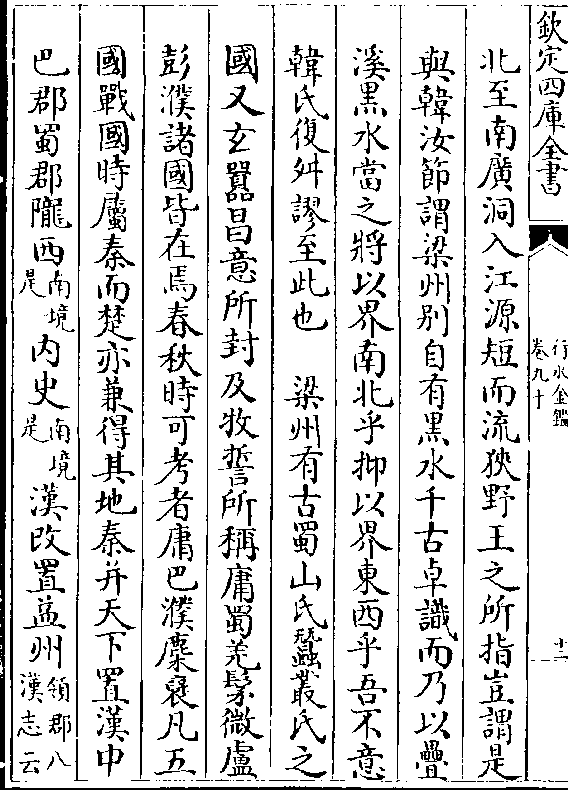 欽定四庫全書
行水金鑑
卷九十
十二
北至南廣洞入江源短而流狹野王之所指豈謂是
與韓汝節謂梁州别自有黒水千古卓識而乃以疊
溪黒水當之將以界南北乎抑以界東西乎吾不意
韓氏復舛謬至此也　梁州有古蜀山氏蠶叢氏之
國又玄囂昌意所封及牧誓所稱庸蜀羌髳微盧
彭濮諸國皆在焉春秋時可考者庸巴濮麇裒凡五
國戰國時屬秦而楚亦兼得其地秦并天下置漢中
巴郡蜀郡隴西南境是内史南境是漢改置益州領郡八漢志云